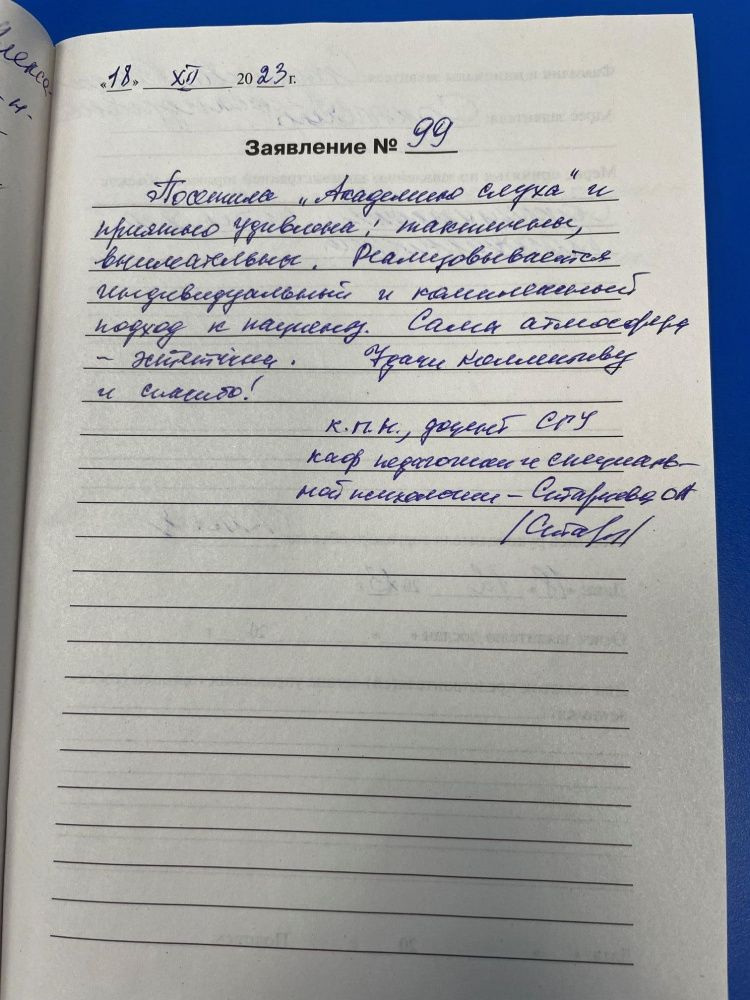 Алекса-
- н-
«18» XII 2023 г.
Заявление № 99
Посетила „Академию слуха“ и
приятно удивлена: тактичны,
внимательны. Реализовывается
индивидуальный и комплексный
подход к пациенту. Сама атмосфера
– эстетична. Удачи коллективу
и спасибо!
к.п.н., доцент СГУ
каф педагогики и специаль-
ной психологии –